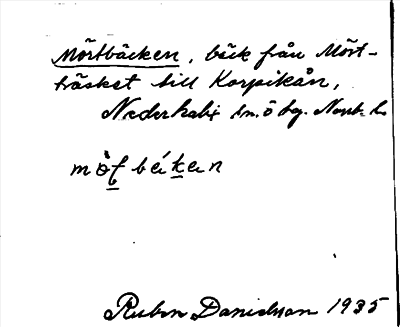 Mörtbäcken, bäck från Mört-
träsket till Korpikån,
Nederkalix sn. ö dg. Nbtn. l.
mö̀ʈbäḱen
Rubin Danielsson 1935